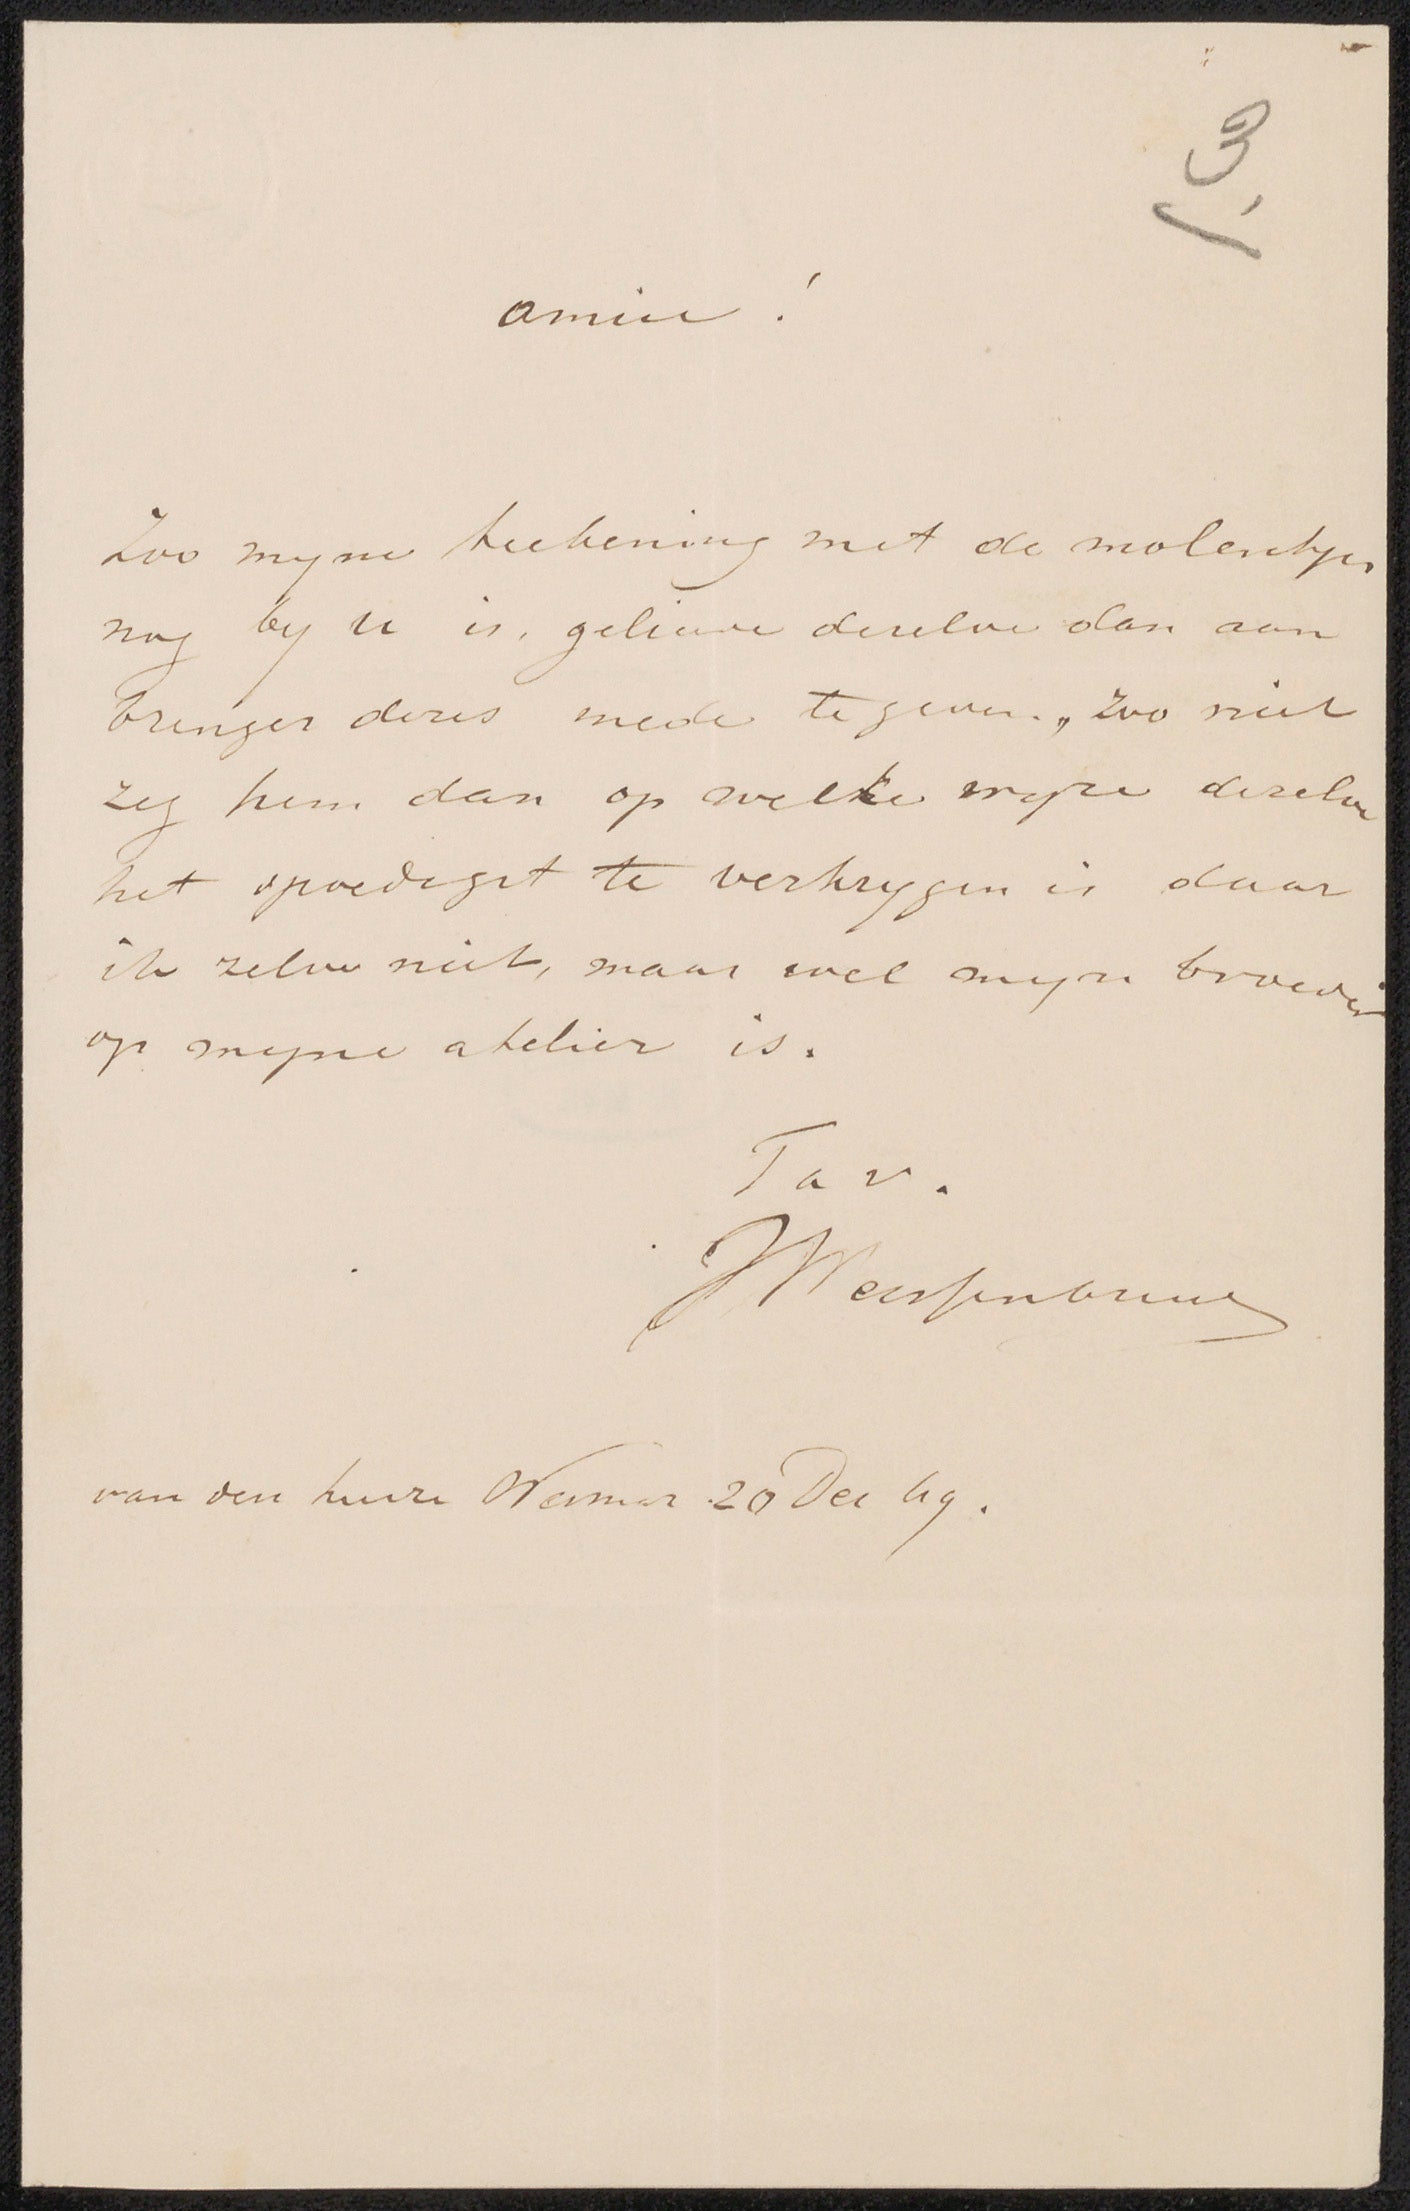 Amice !
Zoo myne teekening met de molentjes
nog by U is, gelieve dezelve dan aan
brenger dezes mede te geven. „ Zoo niet
zeg hem dan op welke wyze dezelve
het spoedigst te verkrygen is daar
ik zelve niet, maar wel myn broeder
op myne atelier is.
T a v .
JWeissenbruch
van den huize Weimar 20 Dec 69 .